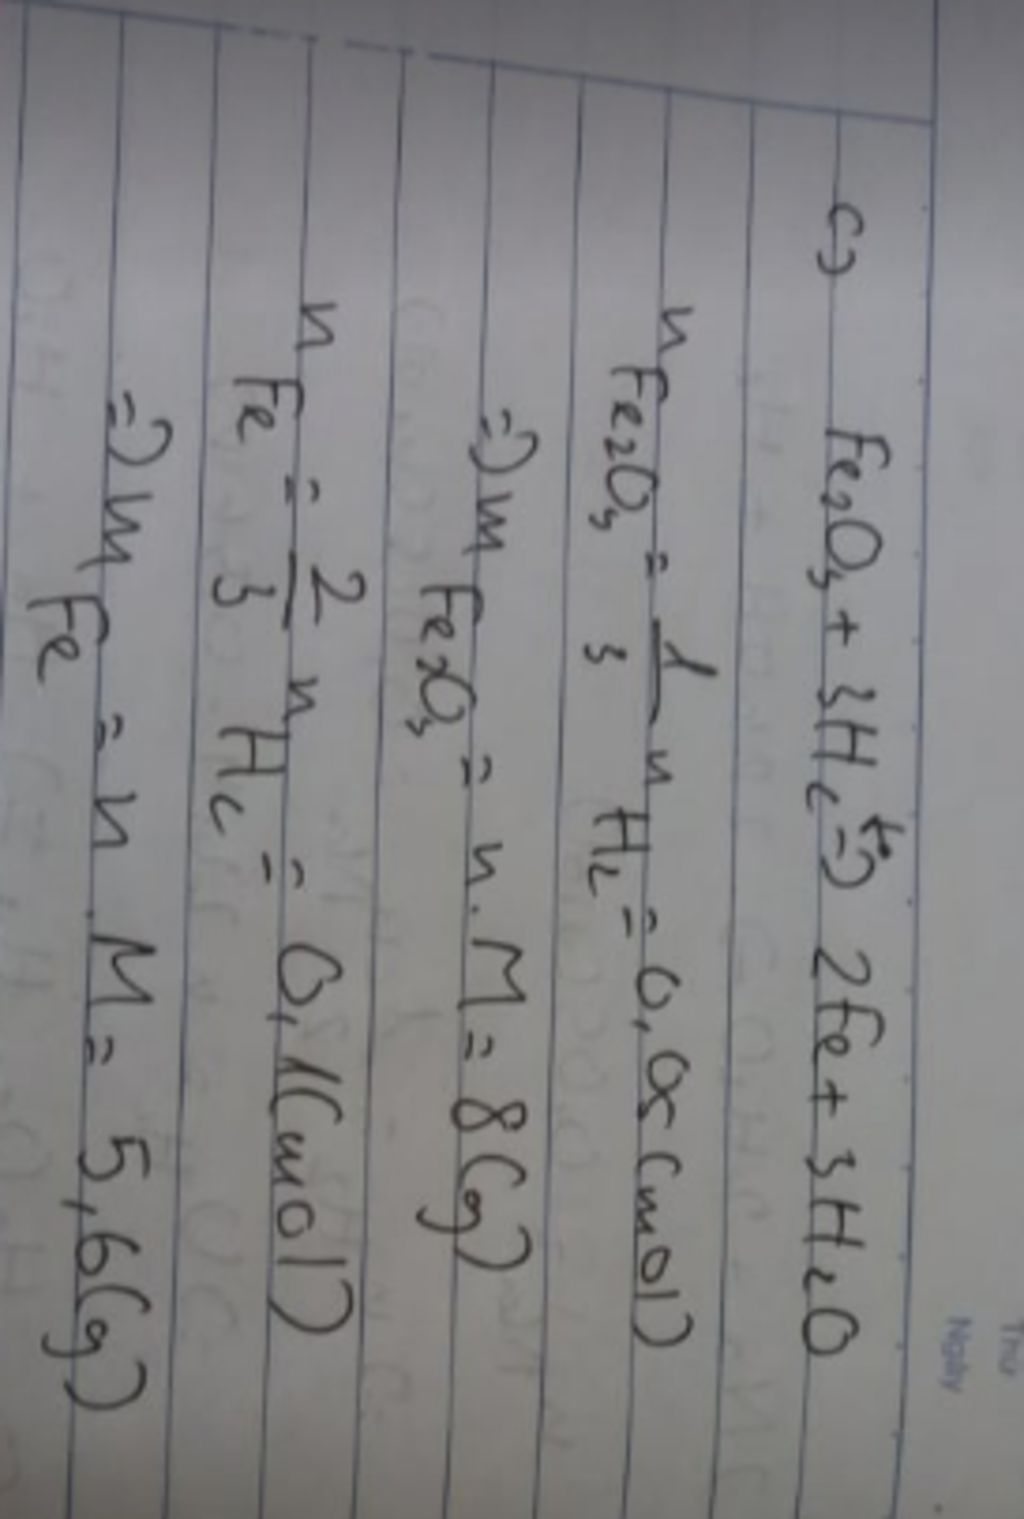 Thứ
Ngày
c) Fe₂O₃ + 3H₂ t° => 2Fe + 3H₂O
n Fe₂O₃ = 1/3 n H₂ = 0,05 (mol)
=> m Fe₂O₃ = n . M = 8 (g)
n Fe = 2/3 n H₂ = 0,1 (mol)
=> m Fe = n . M = 5,6 (g)